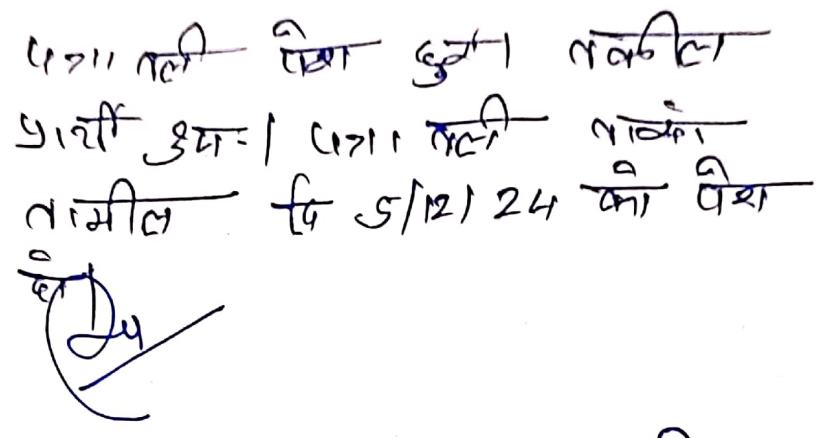 पत्रावली पेश हुई। वकील
प्रार्थी उप०। पत्रावली वास्ते
तामील दि 5/12/24 को पेश
हो